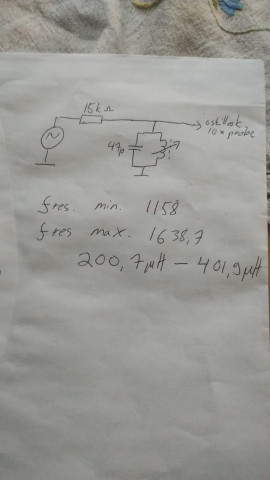 15k Ω
oskillosk.
10x probe
47p
fres. min. 1158
fres max. 1638,7
200,7µH – 401,9µH